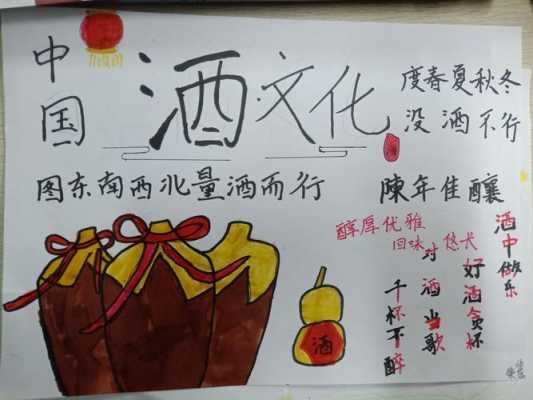 中国
酒文化
度春夏秋冬
没酒不行
酒
图东南西北量酒而行
陳年佳釀
醇厚优雅
回味悠长
酒中做乐
好酒贪杯
对酒当歌
千杯不醉
酒